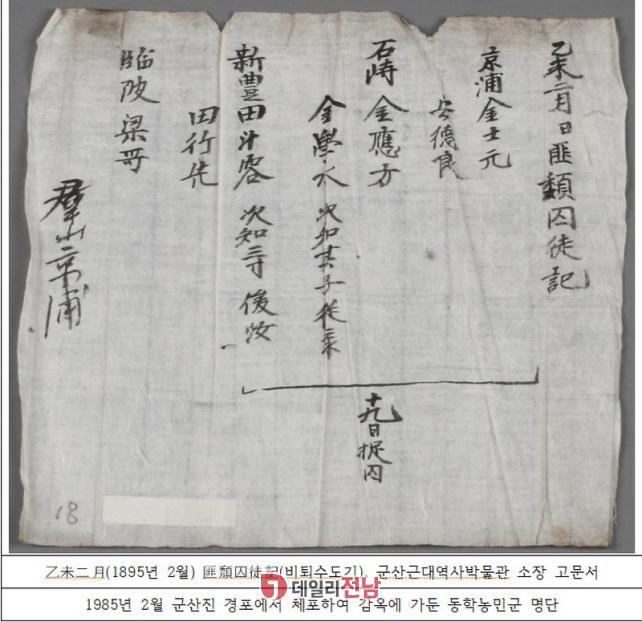 乙未二月日匪類囚徒記
京浦金士元
安德良
石峙金應方
金學水 次知其子徒来
新豊田斗容 次知三寸俊汝
田行先
臨陂梁哥
羣山京浦
十九日捉囚
18
乙未二月(1895년 2월) 匪類囚徒記(비퇴수도기), 군산근대역사박물관 소장 고문서
데일리전남
1985년 2월 군산진 경포에서 체포하여 감옥에 가둔 동학농민군 명단